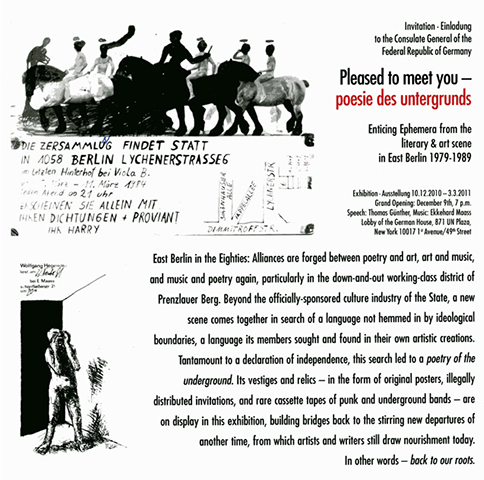 Invitation - Einlodung
to the Consulate General of the
Federal Republic of Germany
Pleased to meet you –
poesie des untergrunds
Enticing Ephemera from the
literary & art scene
in East Berlin 1979-1989
Exhibition - Ausstellung 10.12.2010 - 3.3.2011
Grand Opening: December 9th, 7 p.m.
Speech: Thomas Günther, Music: Ekkehard Maass
Lobby of the German House, 871 UN Plaza,
New York 10017 1st Avenue/49th Street
DIE ZERSAMMLUG FINDET STATT
IN 1058 BERLIN LYCHENERSTRASSE 6
im Letzten Hinterhof bei Viola B.
März - 11. März 1984
Abend um 21 uhr
ERSCHEINEN SIE ALLEIN MIT
IHREN DICHTUNGEN + PROVIANT
IHR HARRY
SCHÖNHAUSER
ALLE
LYCHENERSTR
DIMITROFFSTR.
Wolfgang
bei E. Maass
East Berlin in the Eighties: Alliances are forged between poetry and art, art and music,
and music and poetry again, particularly in the down-and-out working-class district of
Prenzlauer Berg. Beyond the officially-sponsored culture industry of the State, a new
scene comes together in search of a language not hemmed in by ideological
boundaries, a language its members sought and found in their own artistic creations.
Tantamount to a declaration of independence, this search led to a poetry of the
underground. Its vestiges and relics – in the form of original posters, illegally
distributed invitations, and rare cassette tapes of punk and underground bands – are
on display in this exhibition, building bridges back to the stirring new departures of
another time, from which artists and writers still draw nourishment today.
In other words – back to our roots.